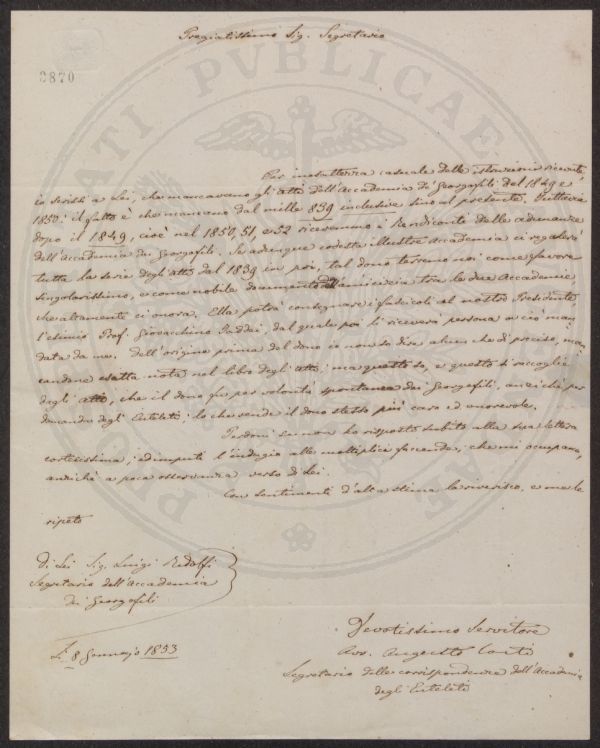 Pregiatissimo Sig. Segretario
3870
PROSPERITATI PVBLICAE
Per inesattezza casuale delle istruzioni ricevute,
io scrissi a Lei, che mancavano gli atti dell'Accademia de' Georgofili del 1849 e
1850: il fatto è che mancano dal mille 839 inclusive sino al presente. Tuttavia
dopo il 1849, cioè nel 1850, 51, e 52 ricevemmo i Rendiconti delle adunanze
dell'Accademia dei Georgofili. Se adunque codesta illustre Accademia ci regalerà
tutta la serie degli atti dal 1839 in poi, tal dono terremo noi come favore
singolarissimo, e come nobile documento dell'amicizia tra le due Accademie
che altamente ci onora. Ella potrà consegnare i fascicoli al nostro Presidente
l'esimio Prof. Giovacchino Taddei, dal quale poi li riceverà persona a ciò man
data da me. Dell'origine prima del dono io non so dire alcun che di preciso, man
candone esatta nota nel libro degli atti; ma questo so, e questo si raccoglie
dagli atti, che il dono fu per volontà spontanea dei Georgofili, anzichè per
domanda degli Euteleti; lo che rende il dono stesso più caro ed onorevole.
Perdoni se non ho risposto subito alla sua lettera
cortesissima; ed imputi l'indugio alle molteplici faccende, che mi occupano,
anzichè a poca osservanza verso di Lei.
Con sentimenti d'alta stima la riverisco, e me le
ripeto
di Lei Sig. Luigi Ridolfi
Segretario dell'Accademia
dei Georgofili
Li 8 Gennajo 1853
Devotissimo Servitore
Avv. Augusto Conti
Segretario delle corrispondenze dell'Accademia
degli Euteleti